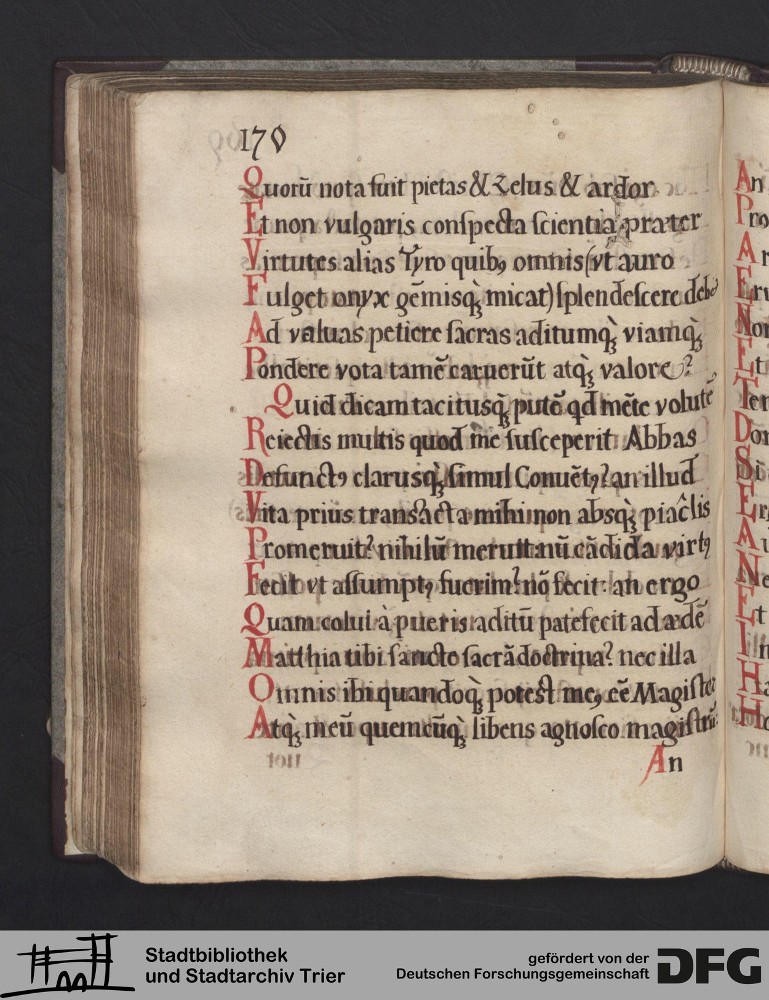 170
Quorū nota fuit pietas & Zelus & ardor
Et non vulgaris conspecta scientia, præter
Virtutes alias Tyro quibꝰ omnis (vt auro
Fulget onyx gēmisq̀ꝫ micat) splendescere debet
Ad valuas petiere sacras aditumq̀ꝫ viamq̀ꝫ
Pondere vota tamē caruerūt atqꝫ valore?
Quid dicam tacitusq̀ꝫ putē qd mēte volutē
Reiectis multis quod me susceperit Abbas
Defunctꝰ clarusq̀ꝫ simul Conuētꝰ? an illud
Vita prius transacta mihi non absq̀ꝫ piac̑lis
Promeruit? nihilū meruit. nū cādida virtꝰ
Fecit vt assumptꝰ fuerim? nō fecit: an ergo
Quam colui à pueris aditū patefecit ad ædē
Matthia tibi sancte sacrā doctrina? nec illa
Omnis ibi quandoq̀ꝫ potest meꝰ eē Magister
Atqꝫ meū quemcūq̀ꝫ libens agnosco magistrū:
An
An
Pro
A
Eru
Non
Et
Ter
Don
Si
E
A
Ne
Et
In
Ha
H
Stadtbibliothek
und Stadtarchiv Trier
gefördert von der
Deutschen Forschungsgemeinschaft
DFG